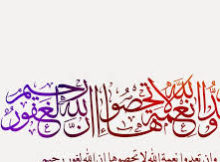 نعمة الله لا تحصوها إن الله لغفور رحيم
وان تعدوا نعمة الله لا تحصوها ان الله لغور رحيم